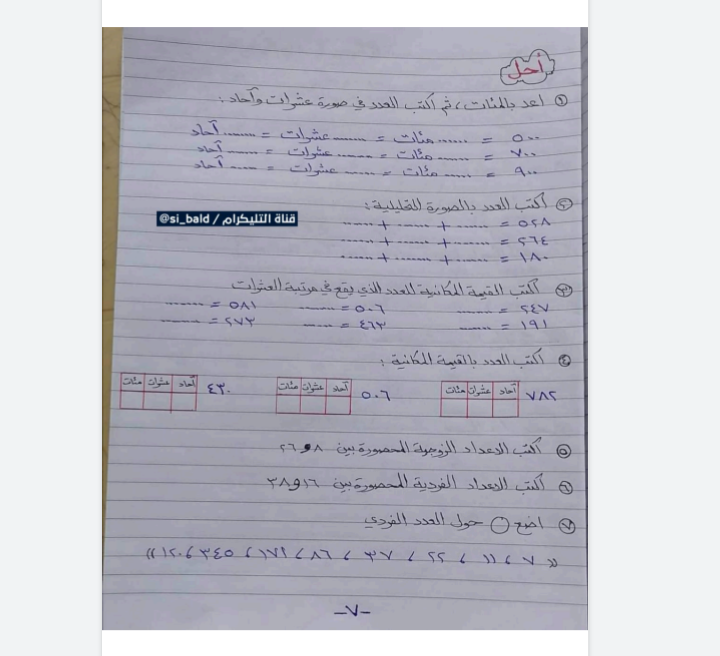 أحل
① اعد بالمئات، ثم اكتب العدد في صورة عشرات وآحاد:
٥٠٠ = ...... مئات = ........ عشرات = ........ آحاد
٧٠٠ = ...... مئات = ........ عشرات = ........ آحاد
٩٠٠ = ...... مئات = ........ عشرات = ...... آحاد
② أكتب العدد بالصورة التحليلية:
٥٢٨ = ........ + ........ + ........
٢٦٤ = ........ + ........ + ........
١٨٠ = ........ + ........ + ........
قناة التليكرام / si_bald@
③ أكتب القيمة المكانية للعدد الذي يقع في مرتبة العشرات
٢٤٧ = ........ ٥٠٦ = ........ ٥٨١ = ........
١٩١ = ........ ٤٦٣ = ...... ٢٧٣ = ........
④ أكتب العدد بالقيمة المكانية:
٧٨٢ آحاد عشرات مئات ٥٠٦ آحاد عشرات مئات ٤٣٠ آحاد عشرات مئات
⑤ أكتب الاعداد الزوجية المحصورة بين ٨ و ٢٦
⑥ أكتب الاعداد الفردية المحصورة بين ١٦ و ٣٨
⑦ اضع ○ حول العدد الفردي
(( ٧ ، ١١ ، ٢٢ ، ٣٧ ، ٨٦ ، ١٧٩ ، ٣٤٥ ، ١٢٠ ))
-٧-